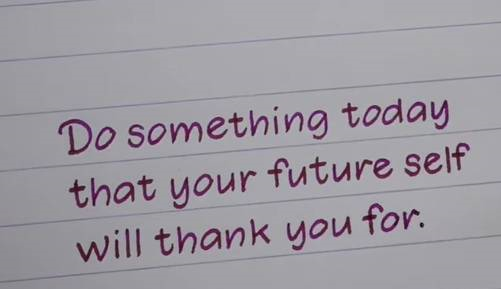 Do something today
that your future self
will thank you for.